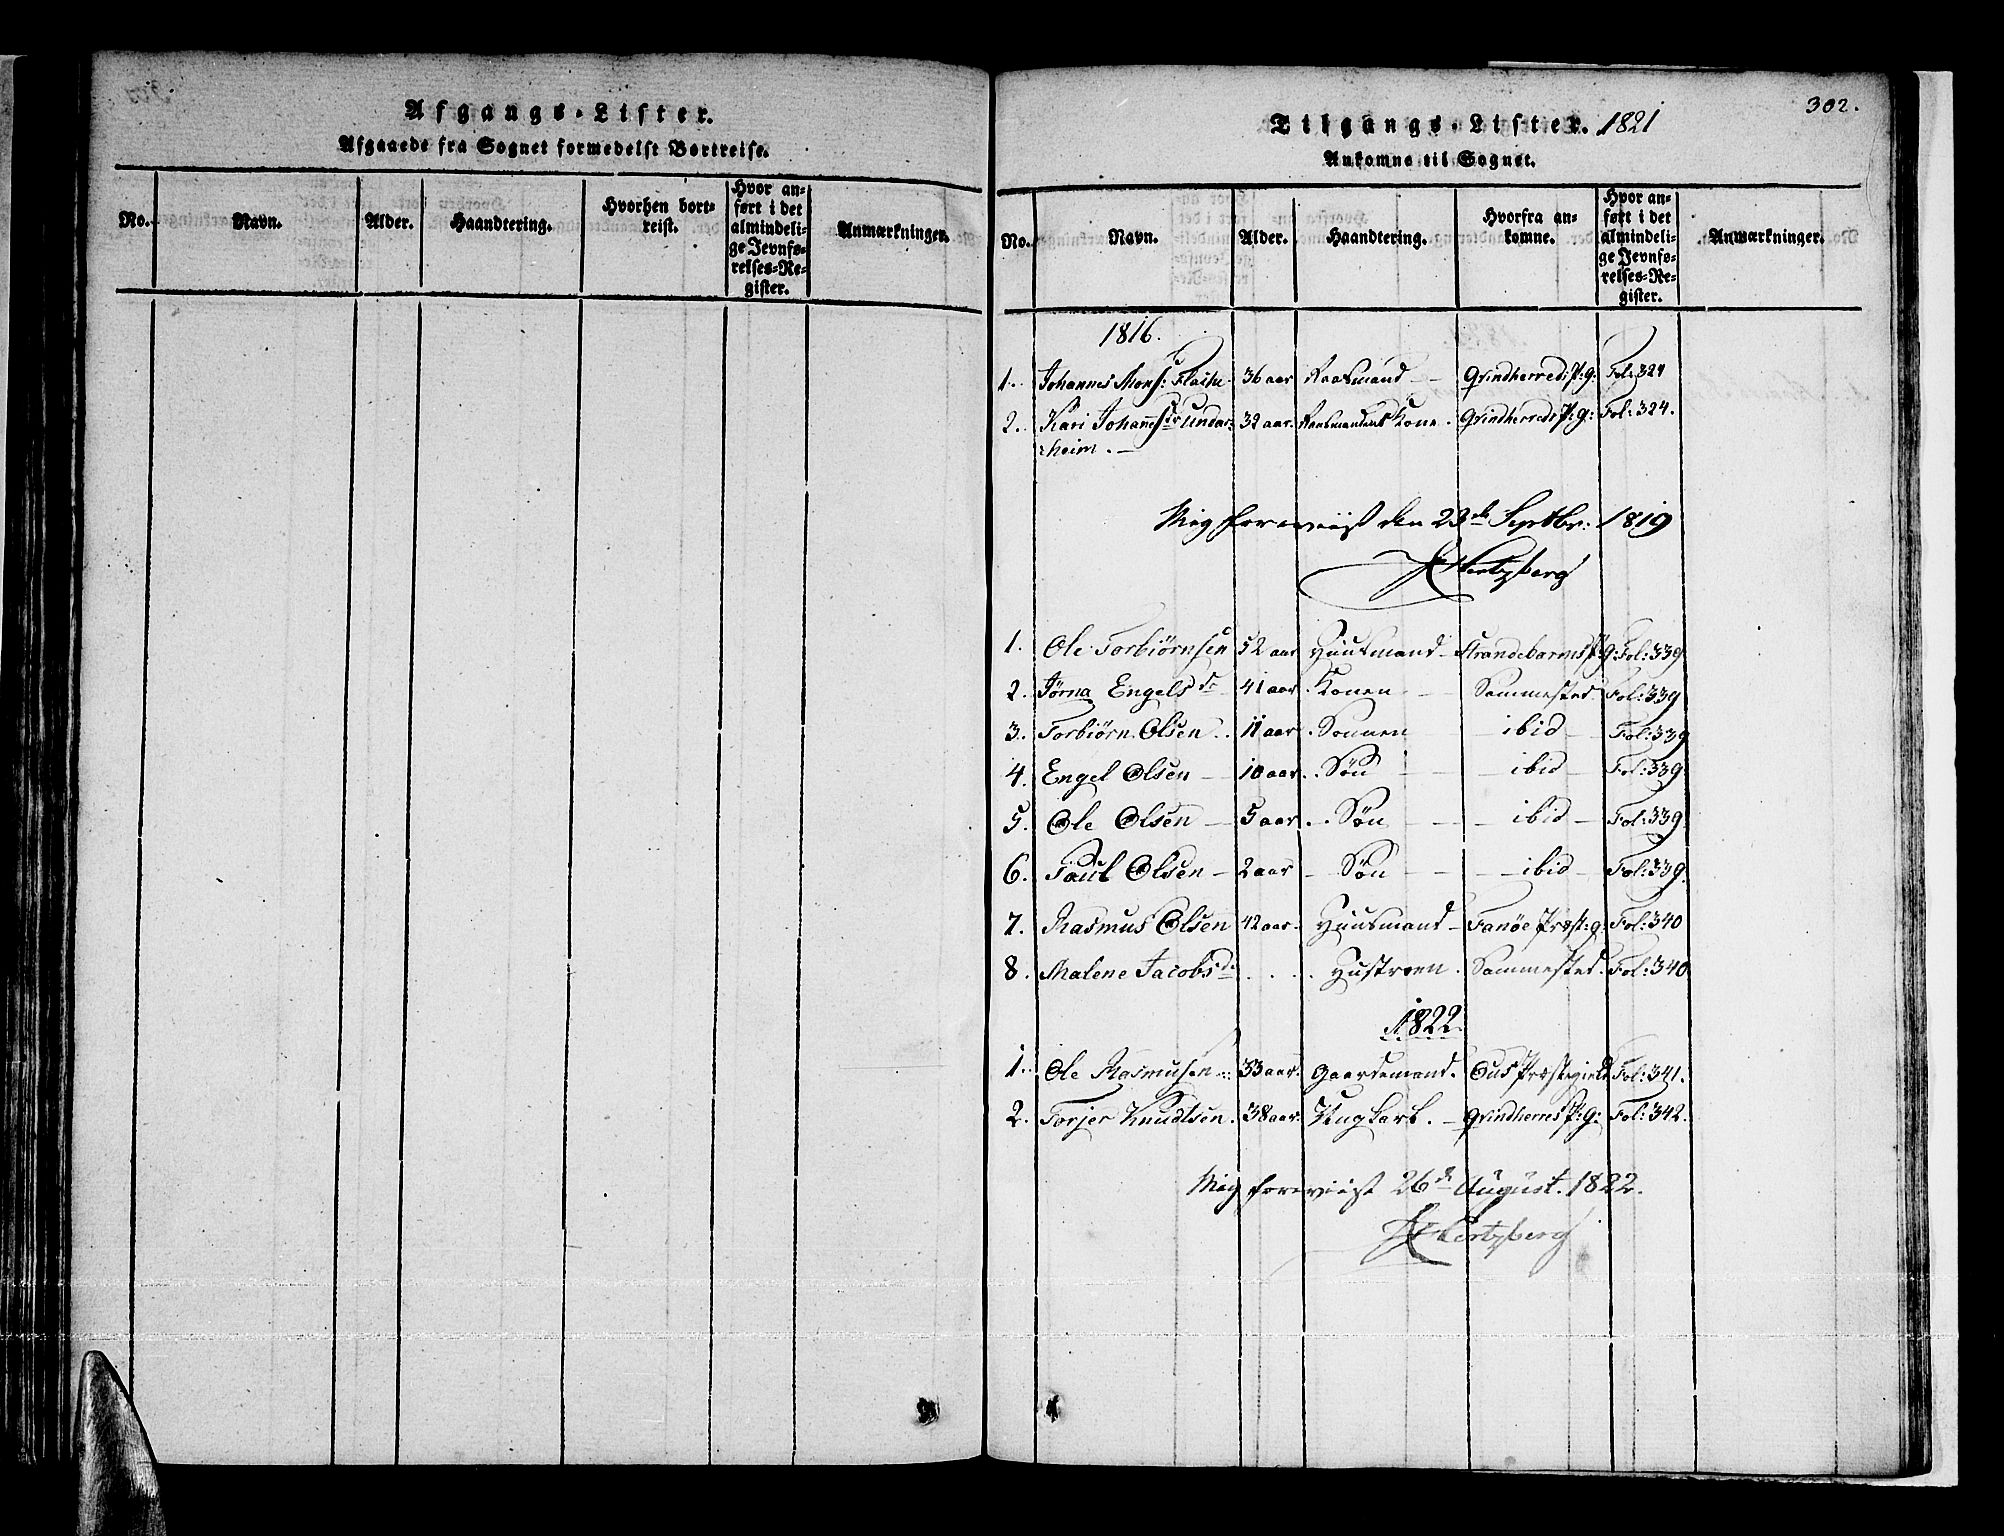 Afgangs-Lister.
Afgaaede fra Sognet formedelst Bortreise.
No. Navn. Alder. Haandtering. Hvorhen bort-
reist. Hvor an-
ført i det
almindeli-
ge Jevnfø-
relses-Re-
gister. Anmærkninger.
302.
Tilgangs-Lister. 1821
Ankomne til Sognet.
No. Navn. Alder. Haandtering. Hvorfra an-
komne. Hvor an-
ført i det
almindeli-
ge Jevnfø-
relses-Re-
gister. Anmærkninger.
1816.
1. Johannes Mons: 36 aar Qvindherreds P:g: Fol: 324
2. Kari Johans dr Undar- 32 aar. Kone. Qvindherreds P:g: Fol: 324.
:heim.
Mig foreviist den 23de Septbr: 1819
Hertzberg
1. Ole Torbiørnsen 52 aar Huusmand Strandebarms P:g: Fol: 339
2. Jørna Engels dr 41 aar. Konen Sammested Fol: 339
3. Torbiørn Olsen 11 aar. Sønnen ibid Fol: 339
4. Engel Olsen 10 aar. Søn ibid Fol: 339
5. Ole Olsen 5 aar. Søn ibid Fol: 339
6. Paul Olsen 2 aar Søn ibid Fol: 339.
7. Rasmus Olsen 42 aar. Huusmand Fanøe Præst:g: Fol: 340
8. Malene Jacobs dr Hustroen. Sammested. Fol: 340
1822.
1. Ole Rasmusen 33 aar. Gaardemand. Ous Præstegield Fol: 341.
2. Torjer Knudtsen. 38 aar. Ungkarl. Qvindherres P:g: Fol: 342.
Mig foreviist 26de August. 1822.
Hertzberg